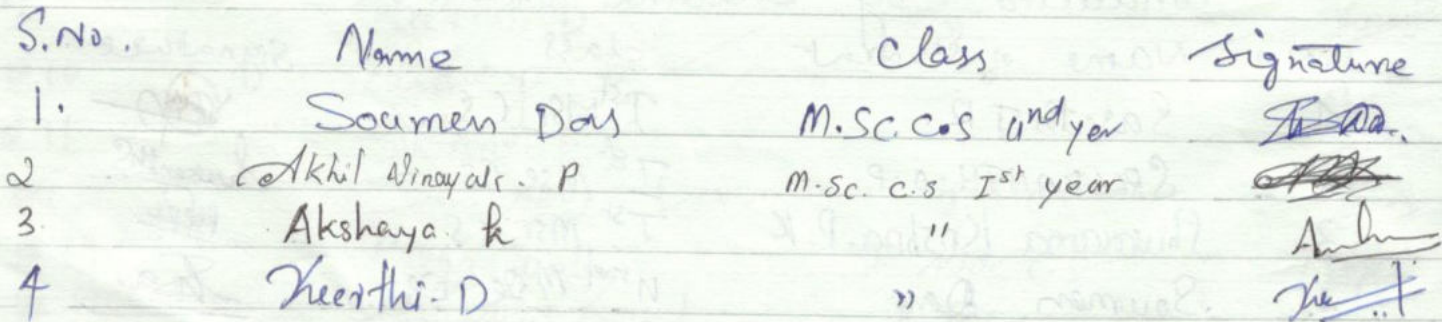 S.No. Name Class Signature
1. Soumen Das M.Sc. C.S IInd year
2 Akhil Vinayak. P M.Sc. C.S Ist year
3. Akshaya. k "
4 Keerthi. D "